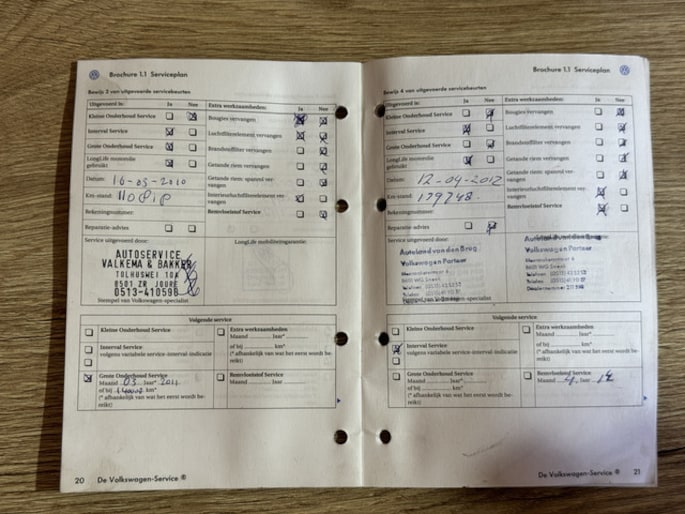 Brochure 1.1 Serviceplan
Uitgevoerd in: Ja Nee
Extra werkzaamheden: Ja Nee
Kleine Onderhoud Service
Bougies vervangen
Interval Service
Luchtfilterelement vervangen
Grote Onderhoud Service
Brandstoffilter vervangen
LongLife motorolie
gebruikt:
Getande riem vervangen:
Datum: 16-03-2010
Getande riem: spanrol ver-
vangen
Km-stand:
Interieurluchtfilterelement ver-
vangen
Rekeningnummer:
Remvloeistof Service
Reparatie-advies
Service uitgevoerd door:
LongLife mobiliteitsgarantie:
AUTOSERVICE
VALKEMA & BAKKER
TOLHUSWEI 10A
8501 ZR JOURE
0513-410598
Stempel van Volkswagen-specialist
Volgende service
Kleine Onderhoud Service
Extra werkzaamheden
Maand Jaar*
Interval Service
volgens variabele service-interval-indicatie
of bij km*
(* afhankelijk van wat het eerst wordt be-
reikt)
Grote Onderhoud Service
Maand 03 Jaar* 2011
of bij km*
(* afhankelijk van wat het eerst wordt be-
reikt)
Remvloeistof Service
Maand Jaar*
20 De Volkswagen-Service ®
Brochure 1.1 Serviceplan
Bewijs 4 van uitgevoerde servicebeurten
Uitgevoerd in: Ja Nee
Extra werkzaamheden: Ja Nee
Kleine Onderhoud Service
Bougies vervangen
Interval Service
Luchtfilterelement vervangen
Grote Onderhoud Service
Brandstoffilter vervangen
LongLife motorolie
gebruikt:
Getande riem vervangen
Datum: 12-04-2012
Getande riem: spanrol ver-
vangen
Km-stand: 179748
Interieurluchtfilterelement ver-
vangen
Rekeningnummer:
Remvloeistof Service
Reparatie-advies
Service uitgevoerd door:
Autoland van den Brug
Volkswagen Partner
Volkswagen Partner
Volgende service
Kleine Onderhoud Service
Extra werkzaamheden
Maand Jaar*
Interval Service
volgens variabele service-interval-indicatie
of bij km*
(* afhankelijk van wat het eerst wordt be-
reikt)
Grote Onderhoud Service
Maand Jaar*
of bij km*
(* afhankelijk van wat het eerst wordt be-
reikt)
Remvloeistof Service
Maand 4 Jaar 14
De Volkswagen-Service ® 21